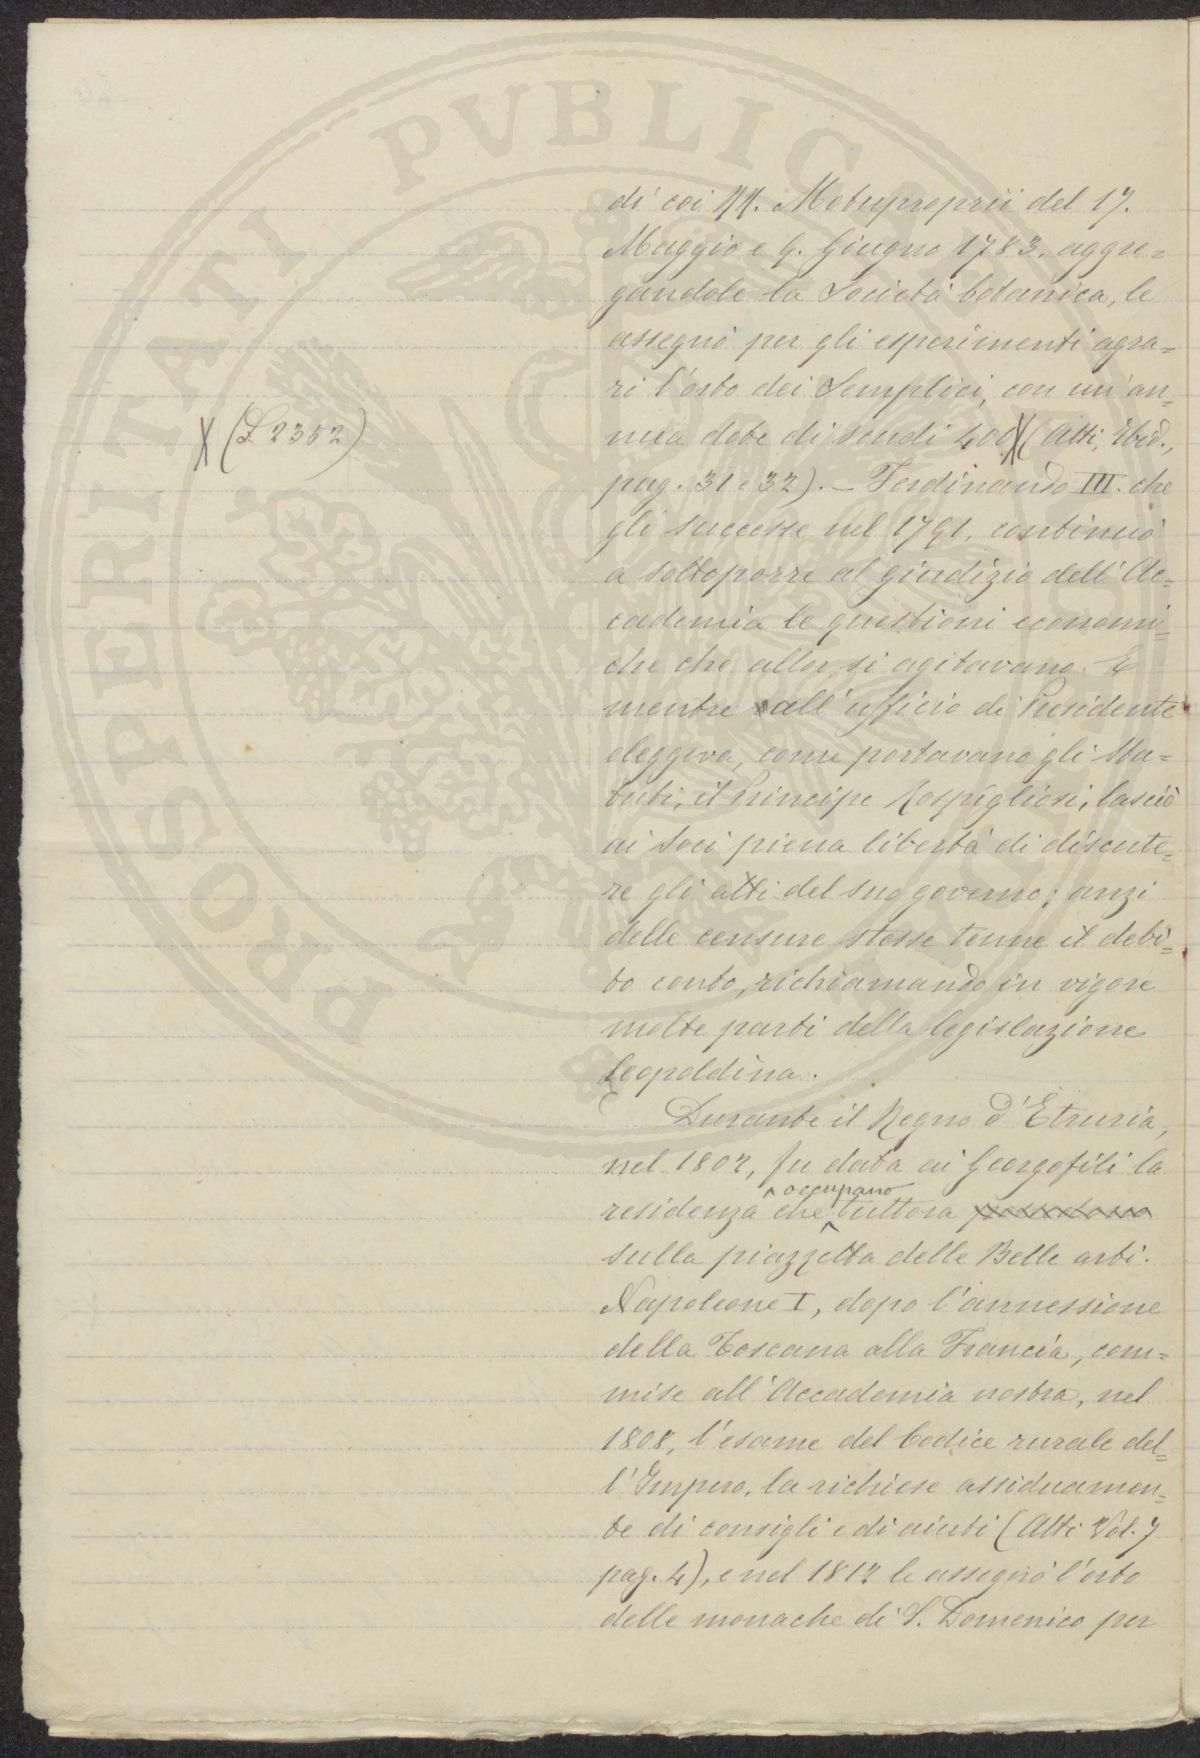 di coi RR. Motupropriì del 17.
Maggio e 9. Giugno 1783. aggre=
gandole la Società botanica, le
assegnò per gli esperimenti agra=
ri l'orto dei Semplici, con un'an=
nua dote di scudi 400 X (Atti, Ibid.,
X (£ 2352)
pag. 31 e 32). — Ferdinando III. che
gli successe nel 1791, continuò
a sottoporre al giudizio dell'Ac=
cademia le questioni economi=
che che allor si agitavano. E
mentre all'ufficio di Presidente
eleggeva, come portavano gli Sta=
tuti, il Principe Rospigliosi, lasciò
ai Soci piena libertà di discute=
re gli atti del suo governo; anzi
delle censure stesse tenne il debi=
to conto, richiamando in vigore
molte parti della legislazione
leopoldina.
Durante il Regno d'Etruria,
nel 1807, fu data ai Georgofili la
residenza che occupano tuttora
sulla piazzetta delle Belle arti.
Napoleone I, dopo l'annessione
della Toscana alla Francia, com=
mise all'Accademia nostra, nel
1808, l'esame del Codice rurale del=
l'Impero, la richiese assiduamen=
te di consigli e di aiuti (Atti Vol. 7
pag. 4), e nel 1812 le assegnò l'orto
delle monache di S. Domenico per
PROSPERITATI PVBLICAE